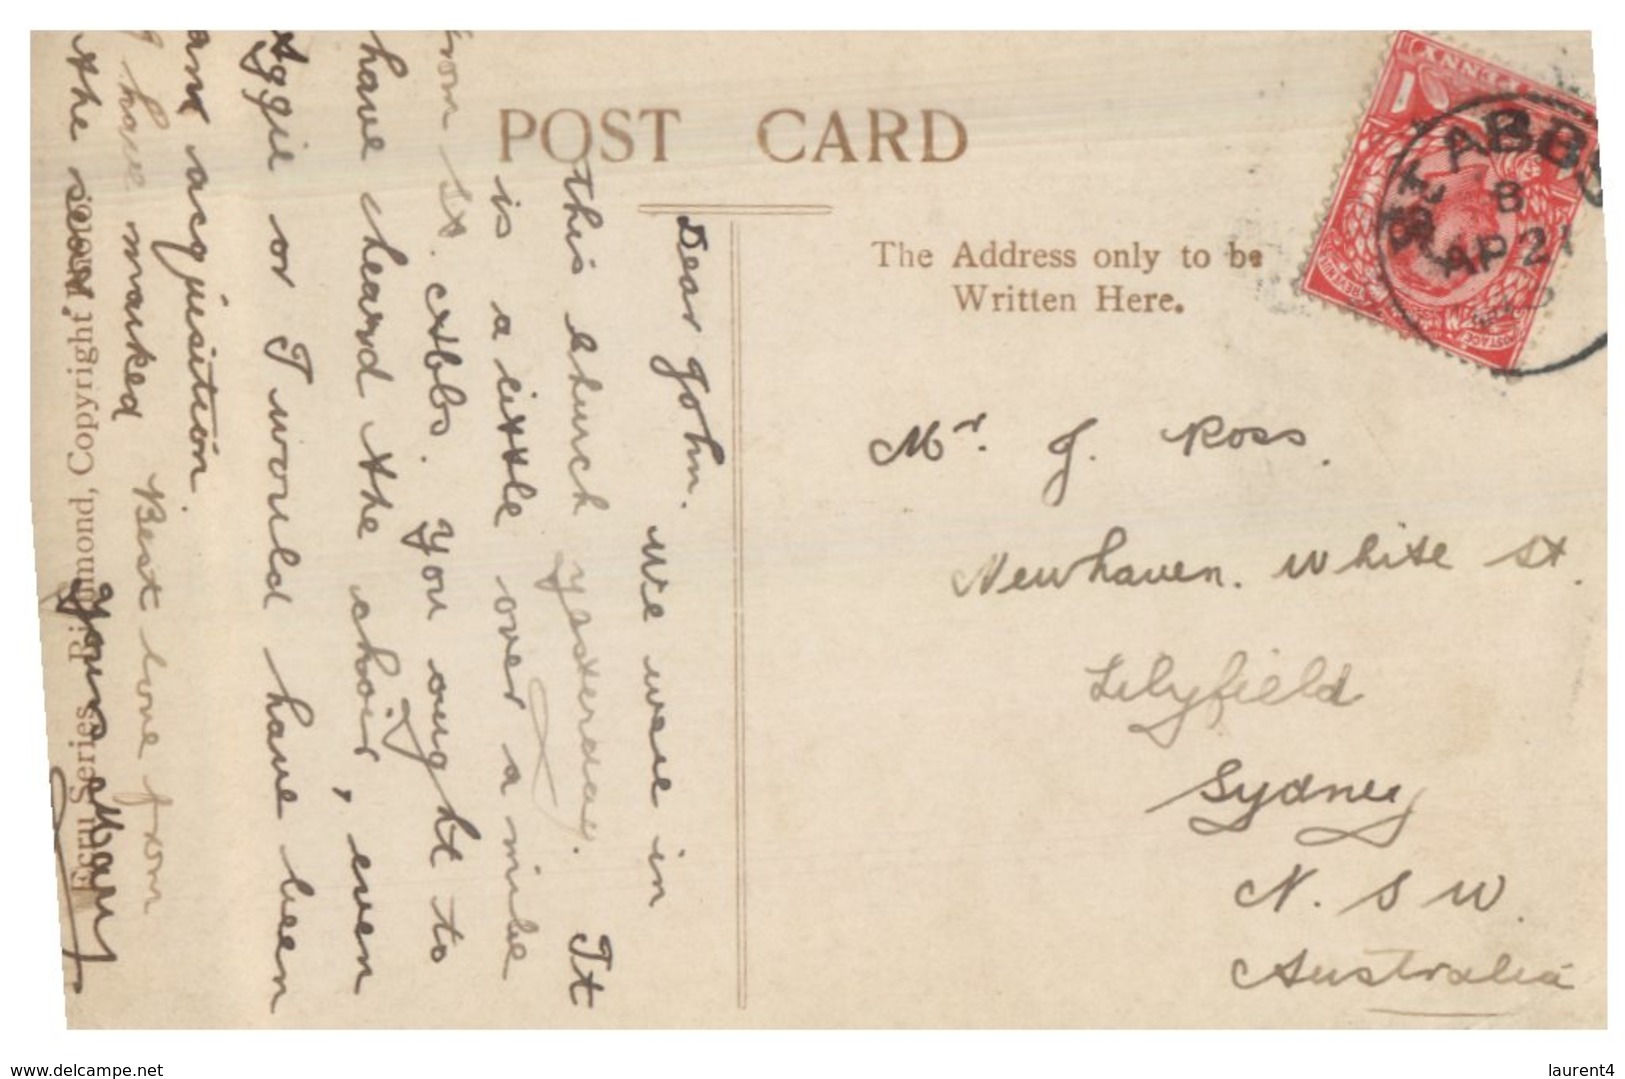 POST CARD
The Address only to be
Written Here.
Mr. J. Ross.
Newhaven. White St.
Lilyfield
Sydney
N. S W.
Australia
Dear John. We were in
this church yesterday. It
is a little over a mile
from St. Abbs. You ought to
have heard the choir, even
Aggie or I would have been
an acquisition.
have marked Best love from
the seat. Yours Mary
Ecru Series, Richmond, Copyright Photo.
ST. ABBS
8
AP 21
PENNY
POSTAGE
REVENUE
www.delcampe.net
laurent4